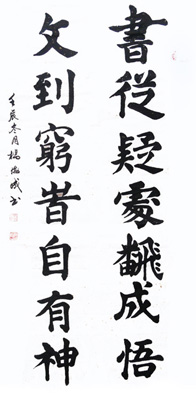 書從疑處飜成悟
文到窮旹自有神
壬辰冬月楊成书